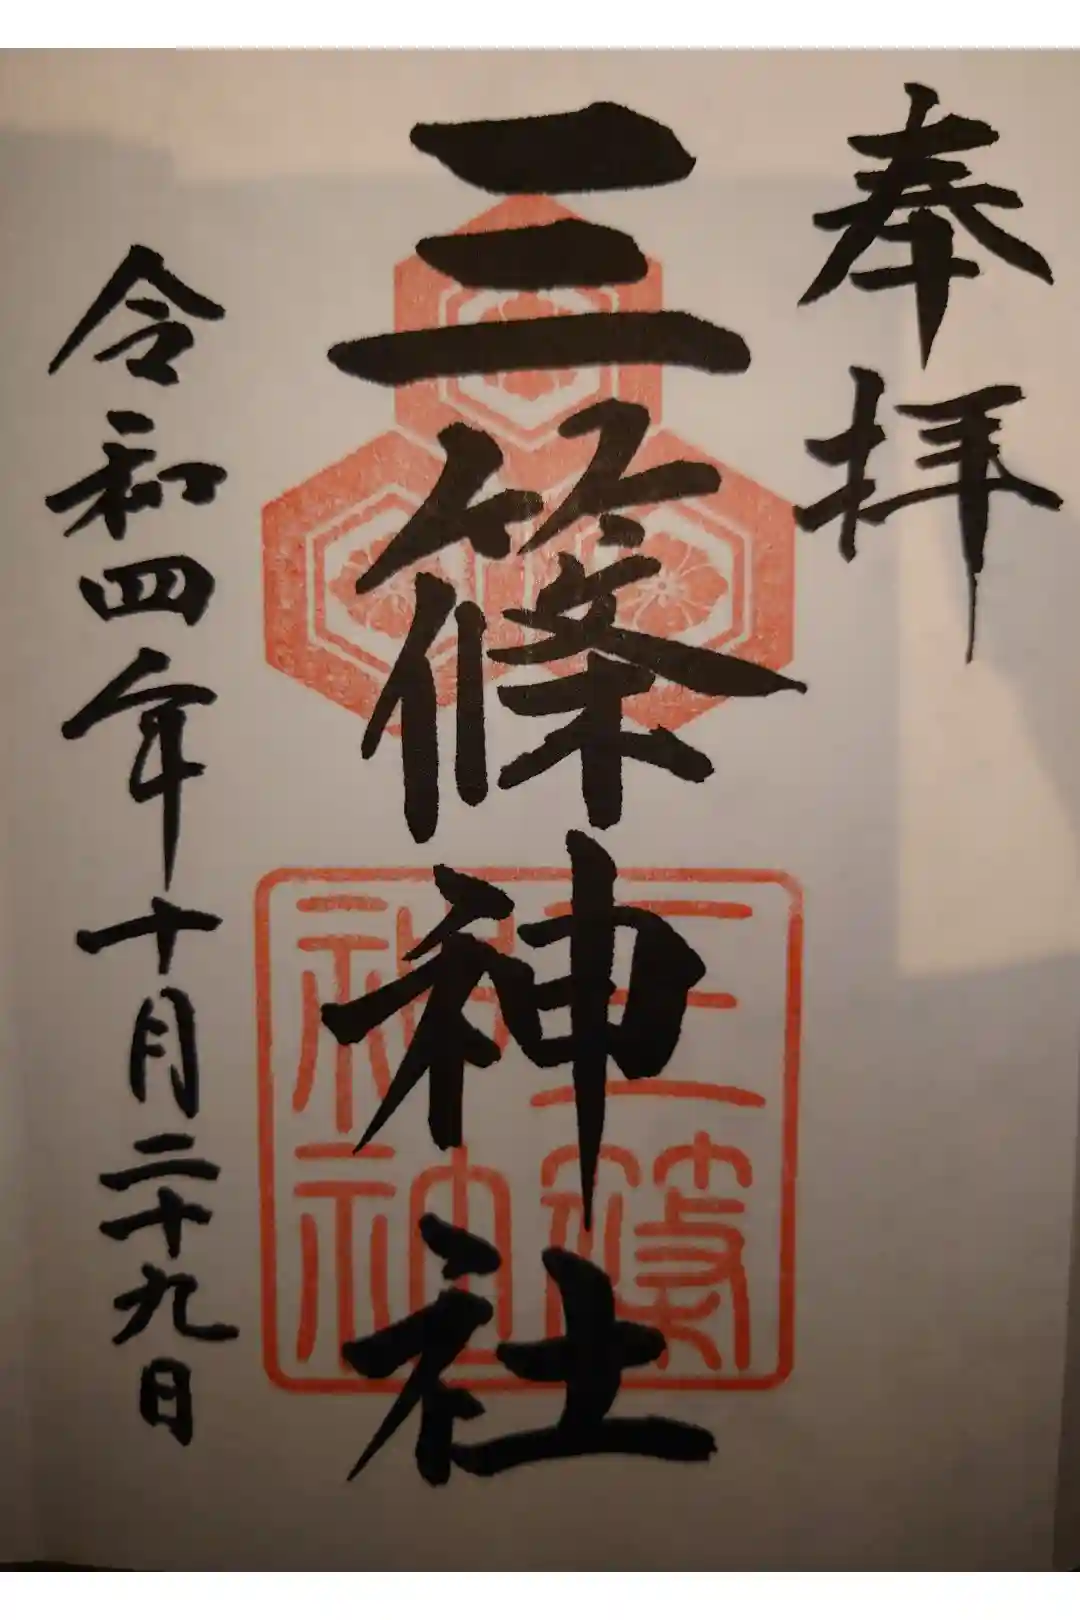 奉拝
三篠神社
三篠神社
令和四年十月二十九日